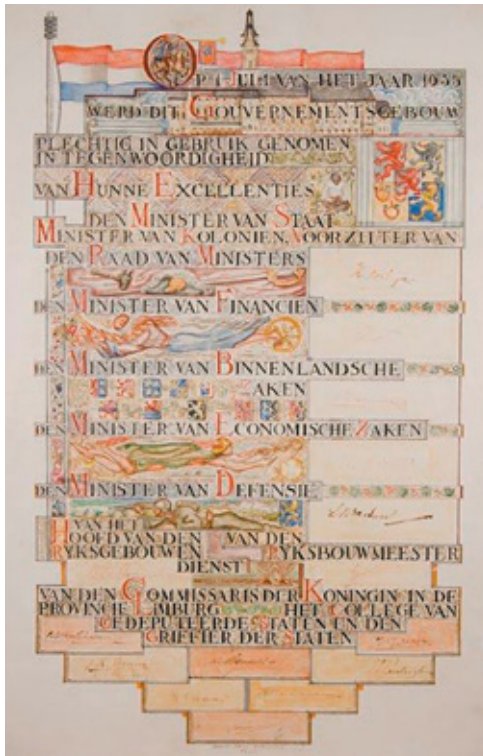 OP 1 JULI VAN HET JAAR 1935
WERD DIT GOUVERNEMENTSGEBOUW
PLECHTIG IN GEBRUIK GENOMEN
IN TEGENWOORDIGHEID
VAN HUNNE EXCELLENTIES
DEN MINISTER VAN STAAT
MINISTER VAN KOLONIEN, VOORZITTER VAN
DEN RAAD VAN MINISTERS
DEN MINISTER VAN FINANCIEN
DEN MINISTER VAN BINNENLANDSCHE
ZAKEN
DEN MINISTER VAN ECONOMISCHE ZAKEN
DEN MINISTER VAN DEFENSIE
VAN HET
HOOFD VAN DEN VAN DEN
RYKSGEBOUWEN RYKSBOUWMEESTER
DIENST
VAN DEN COMMISSARIS DER KONINGIN IN DE
PROVINCIE LIMBURG HET COLLEGE VAN
GEDEPUTEERDE STATEN EN DEN
GRIFFIER DER STATEN